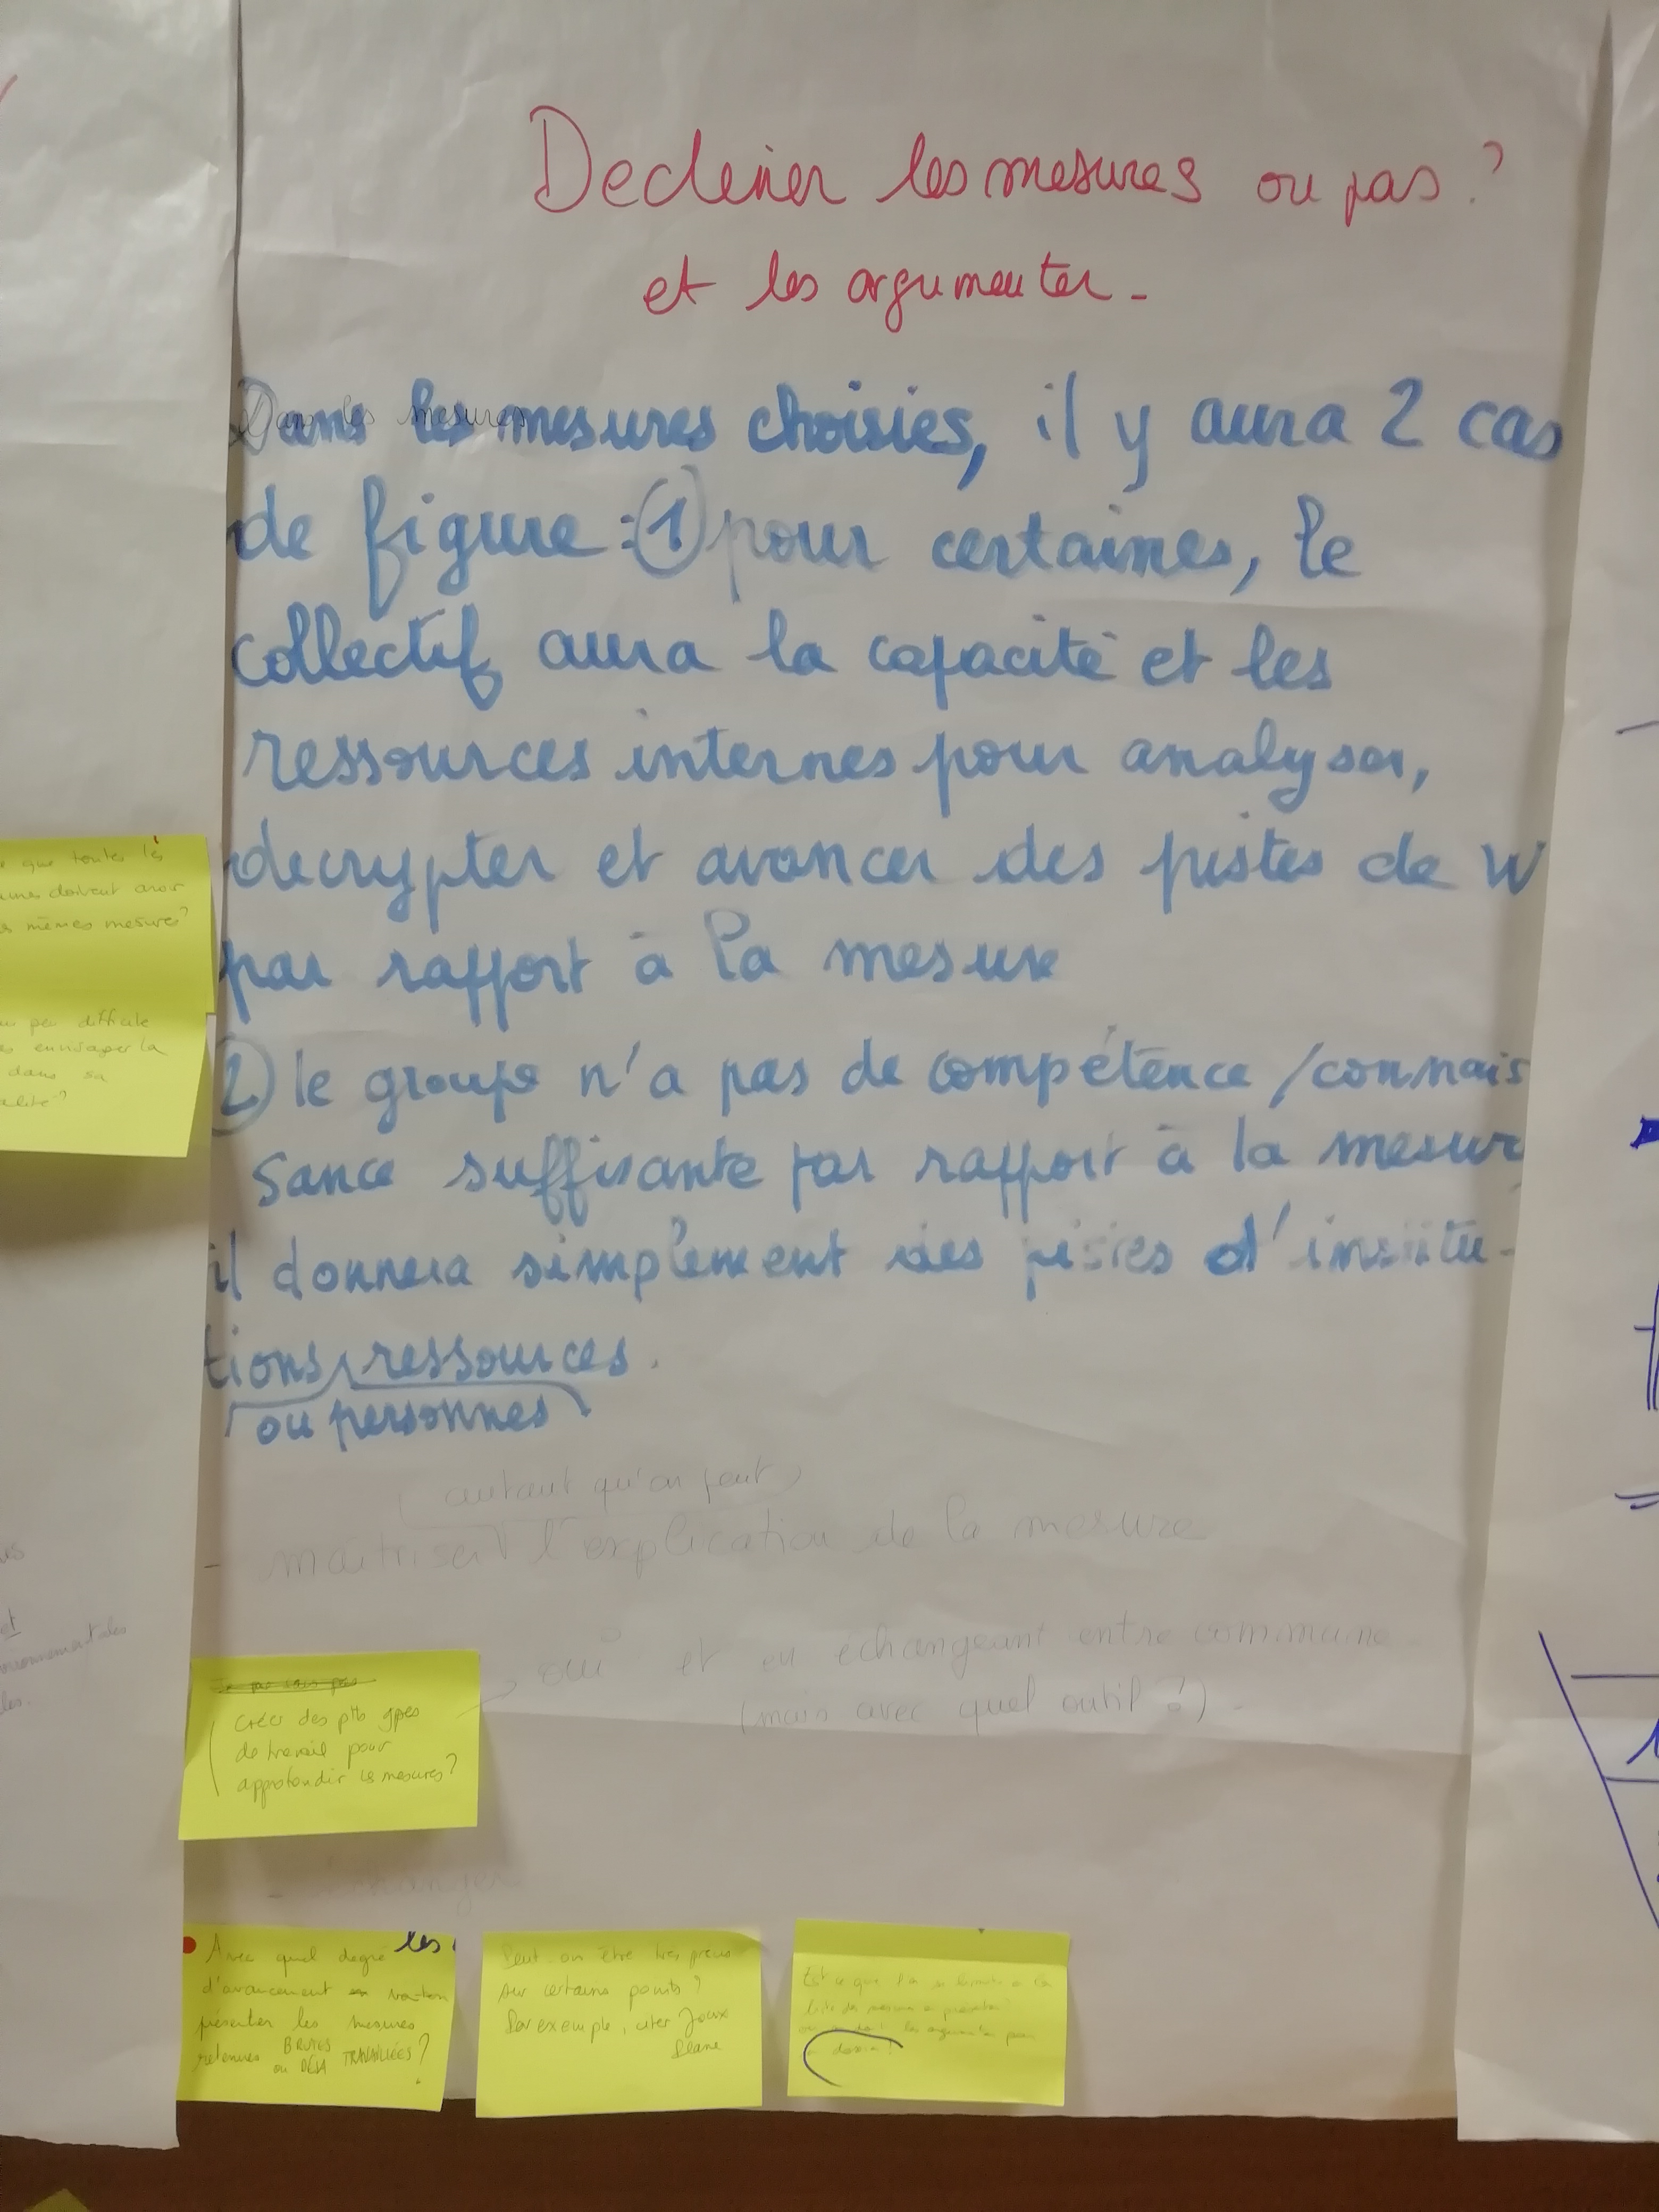 Decliner les mesures ou pas ?
et les argumenter -
Dans les mesures choisies, il y aura 2 cas
de figure : ① pour certaines, le
collectif aura la capacité et les
ressources internes pour analyser,
decrypter et avancer des pistes de W
par rapport à la mesure
② le groupe n'a pas de compétence / connais
sance suffisante par rapport à la mesur
il donnera simplement des pistes d'institu-
tions ressources.
ou personnes
(autant qu'on peut)
- maîtriser l'explication de la mesure
oui et en échangeant entre commune
(mais avec quel outil ?) -
créer des ptts gpes
de travail pour
approfondir les mesures ?
Avec quel degré les
d'avancement va-t-on
présenter les mesures
retenues BRUTES
ou DÉJÀ TRAVAILLÉES ?
Peut-on être très précis
sur certains points ?
Par exemple, citer Joux
Plane
que toutes les
doivent avoir
mêmes mesures ?
peu difficile
envisager la
dans sa